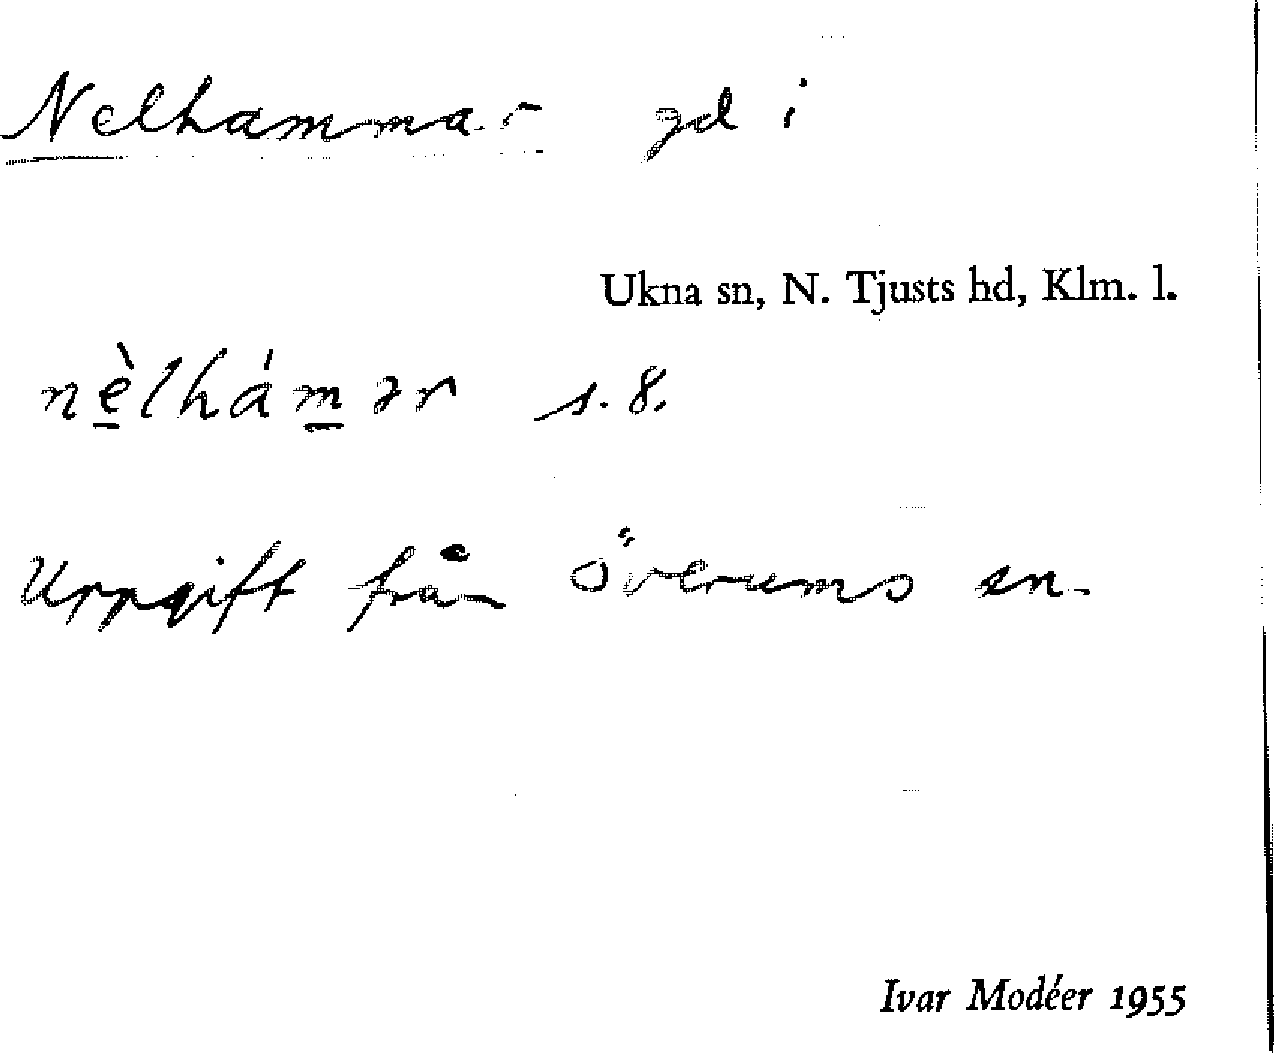 Nelhammar gd i
Ukna sn, N. Tjusts hd, Klm. l.
nèlhámər s. 8.
Uppgift från Överums sn.
Ivar Modéer 1955